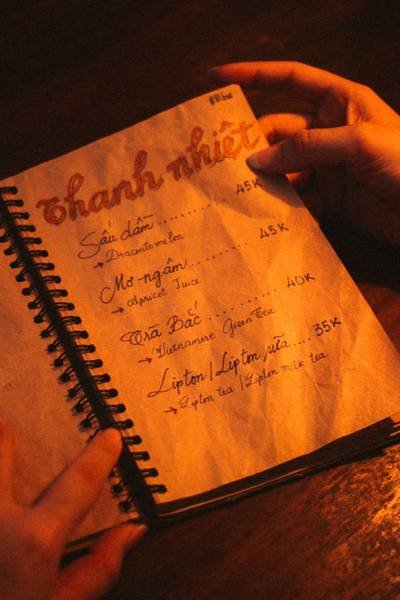 Thanh nhiệt
Sấu dầm .......... 45K
→ Dracontomelon
Mơ ngâm .......... 45K
→ Apricot Juice
Trà Bắc .......... 40K
→ Vietnamese Green Tea
Lipton / Lipton sữa .... 35K
→ Lipton tea / Lipton milk tea